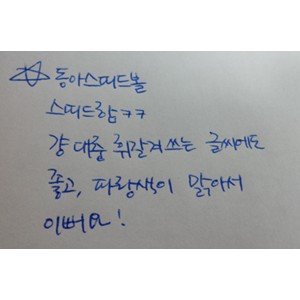 동아스피드볼
스피드함ㅋㅋ
걍 대충 휘갈겨쓰는 글씨에도
좋고, 파랑색이 맑아서
이뻐요!